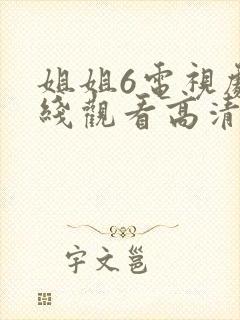 姐姐6電視劇
綫觀看高清
宇文邕